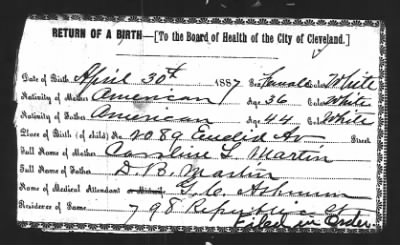 RETURN OF A BIRTH—[To the Board of Health of the City of Cleveland.]
Date of Birth April 30th 1887 Sex Female Color White
Nativity of Mother American Age 36 Color White
Nativity of Father American Age 44 Color White
Place of Birth (of child) No. 2089 Euclid Av Street
Full Name of Mother Caroline L. Martin
Full Name of Father D. B. Martin
Name of Medical Attendant G. C.
Residence of Same 798 Republic St
Filed in Order.